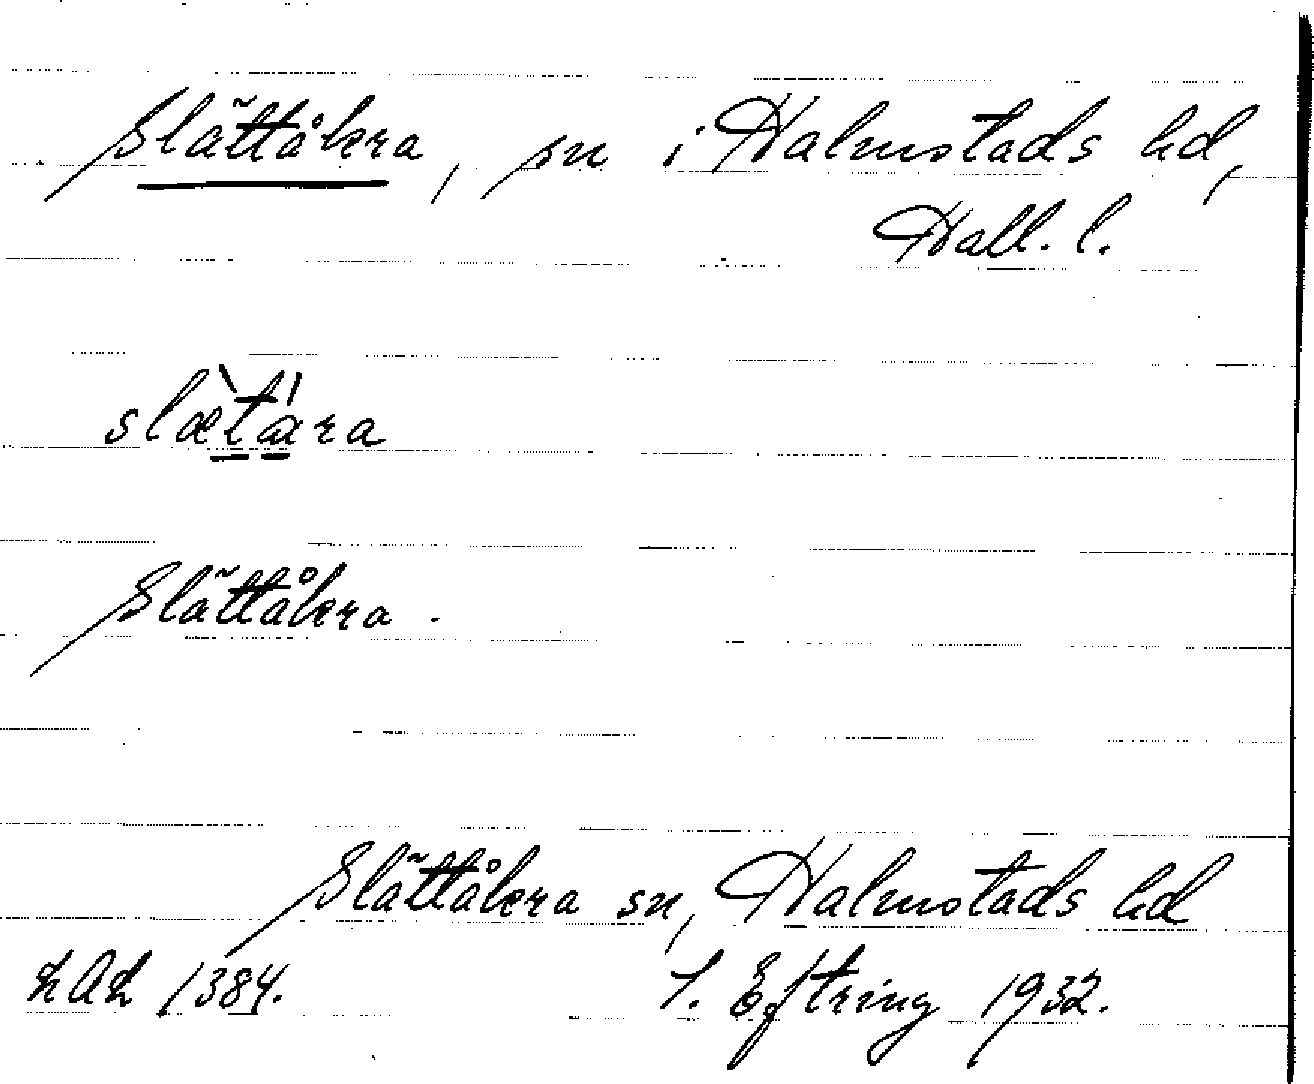 Slättåkra, sn i Halmstads hd,
Hall. l.
slæ̀tára
Slättåkra.
Slättåkra sn, Halmstads hd
LAL 1384. S. Eftring 1932.